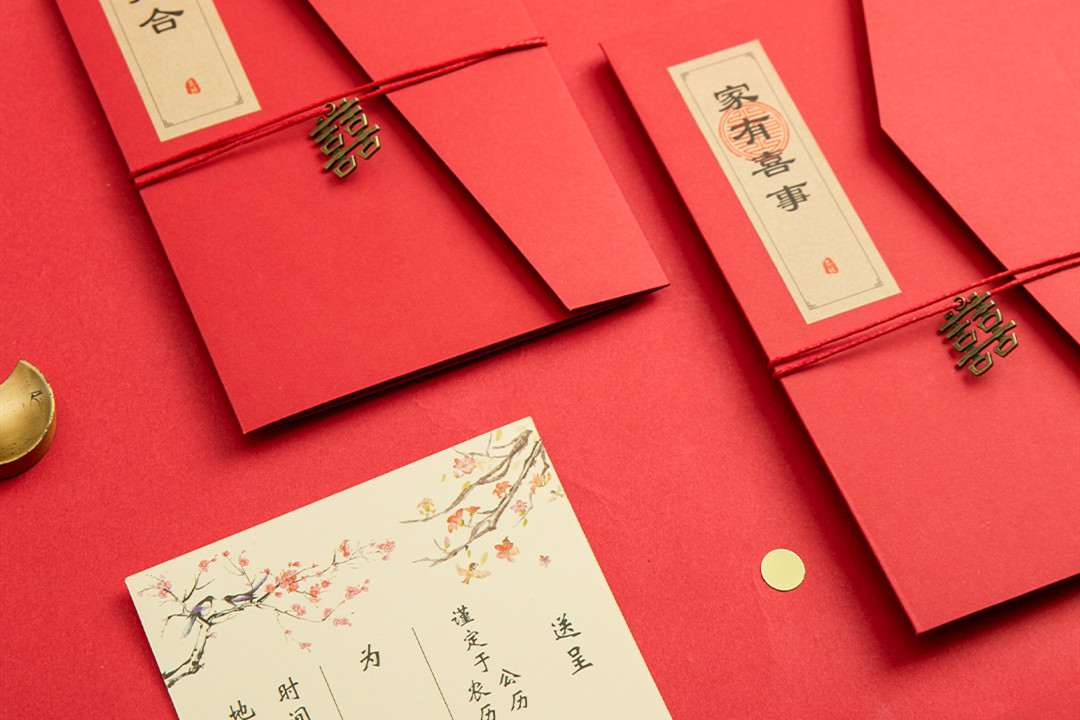 合
家有喜事
囍
囍
送呈
公历
谨定于农历
为
时间
地